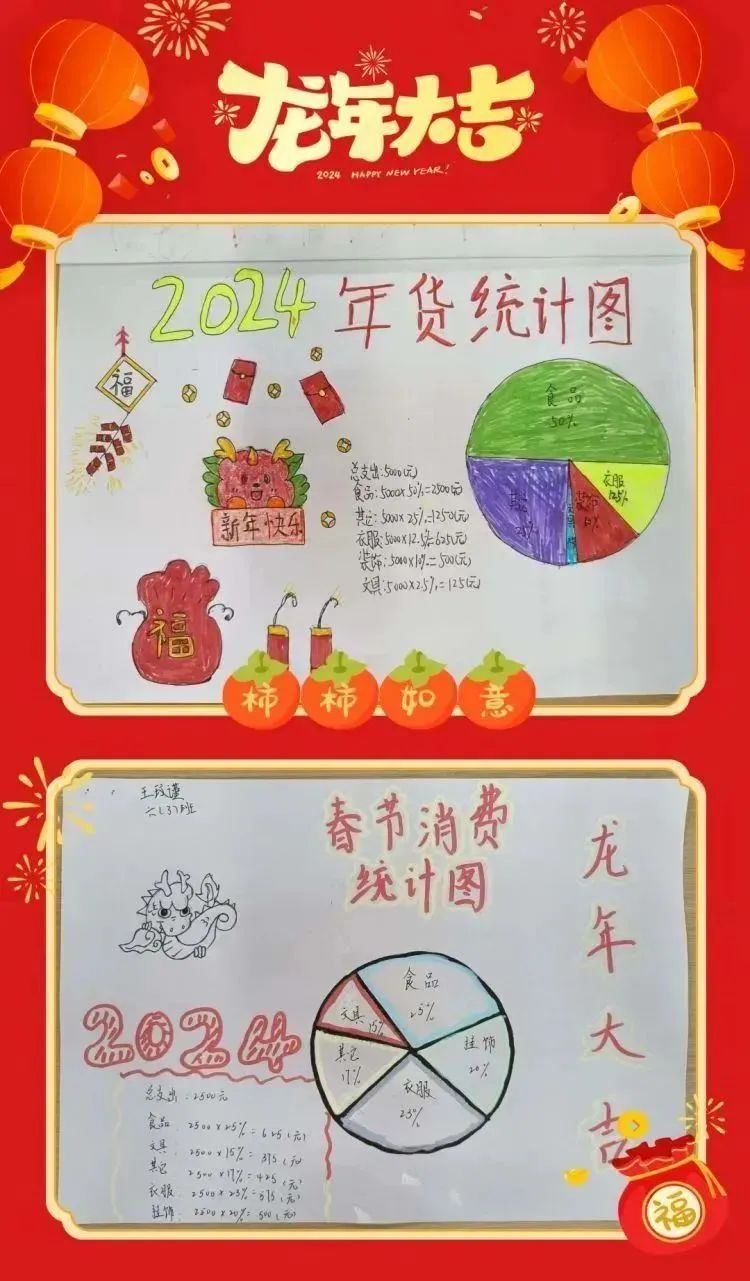 龙年大吉
2024 HAPPY NEW YEAR!
2024 年货统计图
福
食品
50%
衣服
12.5%
其它
25%
文具
装饰
10%
总支出:5000(元)
食品:5000×50%=2500(元)
其它:5000×25%=1250(元)
衣服:5000×12.5%=625(元)
装饰:5000×10%=500(元)
文具:5000×2.5%=125(元)
新年快乐
福
柿柿如意
六(3)班
春节消费
统计图
龙年大吉
2024
食品
25%
文具 15%
挂饰
20%
其它
17%
衣服
23%
总支出:2500元
食品:2500×25%=625(元)
文具:2500×15%=375(元)
其它:2500×17%=425(元)
衣服:2500×23%=575(元)
挂饰:2500×20%=500(元)
福